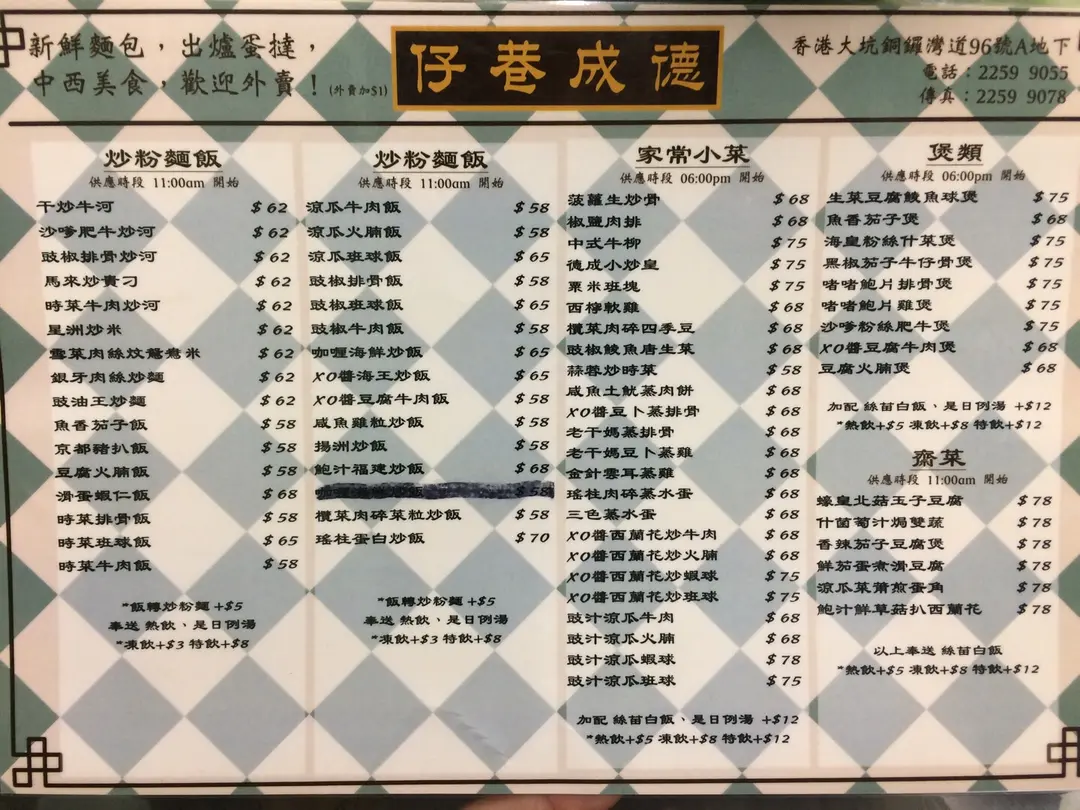 新鮮麵包，出爐蛋撻，
中西美食，歡迎外賣！(外賣加$1)
仔巷成德
香港大坑銅鑼灣道96號A地下
電話：2259 9055
傳真：2259 9078
炒粉麵飯
供應時段 11:00am 開始
干炒牛河 $62
沙嗲肥牛炒河 $62
豉椒排骨炒河 $62
馬來炒貴刁 $62
時菜牛肉炒河 $62
星洲炒米 $62
雪菜肉絲炆鴛鴦米 $62
銀牙肉絲炒麵 $62
豉油王炒麵 $62
魚香茄子飯 $58
京都豬扒飯 $58
豆腐火腩飯 $58
滑蛋蝦仁飯 $68
時菜排骨飯 $58
時菜班球飯 $65
時菜牛肉飯 $58
*飯轉炒粉麵 +$5
奉送 熱飲、是日例湯
*凍飲+$3 特飲+$8
炒粉麵飯
供應時段 11:00am 開始
涼瓜牛肉飯 $58
涼瓜火腩飯 $58
涼瓜班球飯 $65
豉椒排骨飯 $58
豉椒班球飯 $65
豉椒牛肉飯 $58
咖喱海鮮炒飯 $65
XO醬海王炒飯 $65
XO醬豆腐牛肉飯 $58
咸魚雞粒炒飯 $58
揚洲炒飯 $58
鮑汁福建炒飯 $68
欖菜肉碎菜粒炒飯 $58
瑤柱蛋白炒飯 $70
*飯轉炒粉麵 +$5
奉送 熱飲、是日例湯
*凍飲+$3 特飲+$8
家常小菜
供應時段 06:00pm 開始
菠蘿生炒骨 $68
椒鹽肉排 $68
中式牛柳 $75
德成小炒皇 $75
粟米班塊 $75
西檸軟雞 $68
欖菜肉碎四季豆 $68
豉椒鯪魚唐生菜 $68
蒜蓉炒時菜 $58
咸魚土魷蒸肉餅 $68
XO醬豆卜蒸排骨 $68
老干媽蒸排骨 $68
老干媽豆卜蒸雞 $68
金針雲耳蒸雞 $68
瑤柱肉碎蒸水蛋 $68
三色蒸水蛋 $68
XO醬西蘭花炒牛肉 $68
XO醬西蘭花炒火腩 $68
XO醬西蘭花炒蝦球 $75
XO醬西蘭花炒班球 $75
豉汁涼瓜牛肉 $68
豉汁涼瓜火腩 $68
豉汁涼瓜蝦球 $78
豉汁涼瓜班球 $75
加配 絲苗白飯、是日例湯 +$12
*熱飲+$5 凍飲+$8 特飲+$12
煲類
供應時段 06:00pm 開始
生菜豆腐鯪魚球煲 $75
魚香茄子煲 $68
海皇粉絲什菜煲 $75
黑椒茄子牛仔骨煲 $75
啫啫鮑片排骨煲 $75
啫啫鮑片雞煲 $75
沙嗲粉絲肥牛煲 $75
XO醬豆腐牛肉煲 $75
豆腐火腩煲 $68
加配 絲苗白飯、是日例湯 +$12
*熱飲+$5 凍飲+$8 特飲+$12
齋菜
供應時段 11:00am 開始
蠔皇北菇玉子豆腐 $78
什菌葡汁焗雙蔬 $78
香辣茄子豆腐煲 $78
鮮茄蛋煮滑豆腐 $78
涼瓜菜莆煎蛋角 $78
鮑汁鮮草菇扒西蘭花 $78
以上奉送 絲苗白飯
*熱飲+$5 凍飲+$8 特飲+$12